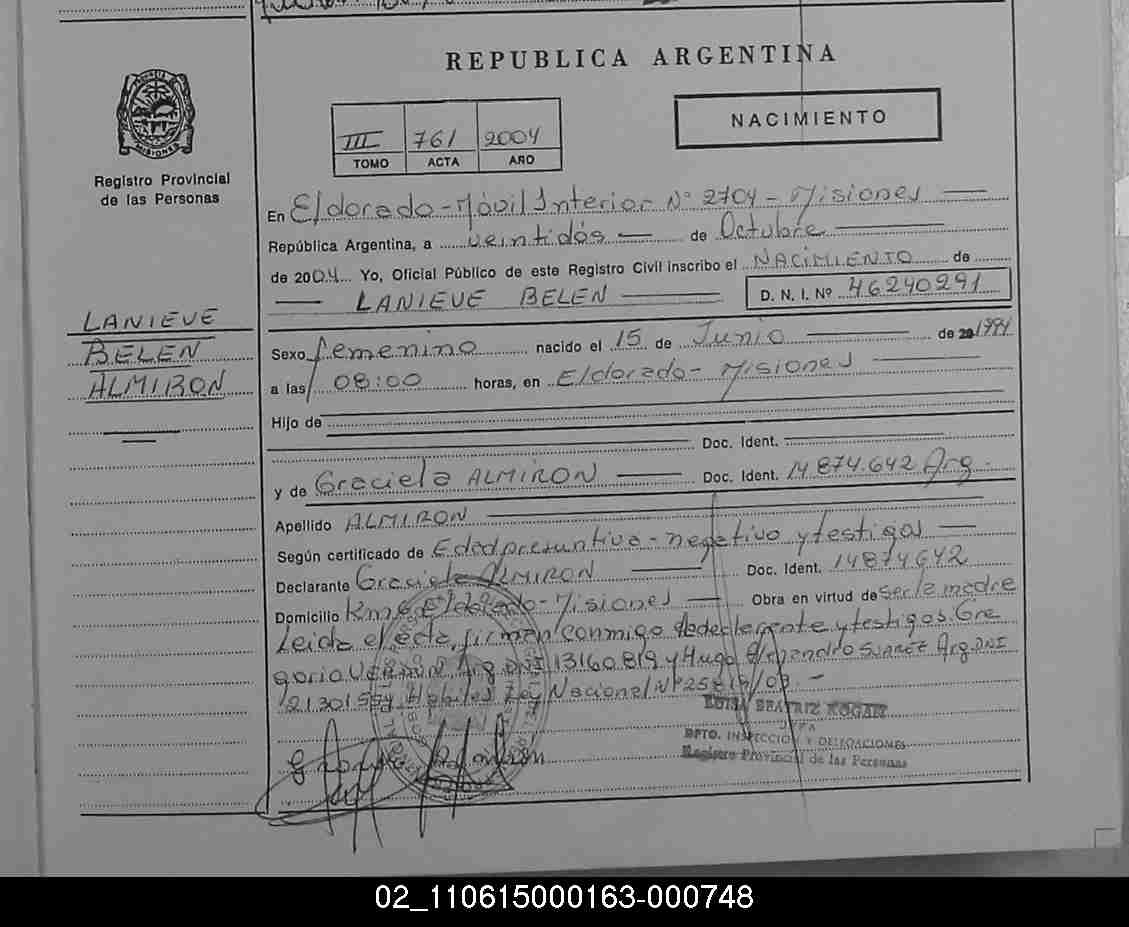 REPUBLICA ARGENTINA
NACIMIENTO
III 761 2004
TOMO ACTA AÑO
MISIONES
Registro Provincial
de las Personas
En Eldorado - Móvil Interior Nº 2704 - Misiones
República Argentina, a veintidós de Octubre
de 2004 Yo, Oficial Público de este Registro Civil inscribo el NACIMIENTO de
LANIEVE BELEN D. N. I. Nº 46240291
LANIEVE
BELEN
ALMIRON
Sexo femenino nacido el 15 de Junio de 1994
a las 08:00 horas, en Eldorado - Misiones
Hijo de
Doc. Ident.
y de Graciela ALMIRON Doc. Ident. 14874.642 Arg.
Apellido ALMIRON
Según certificado de Edad presuntiva - negativo y testigos
Declarante Graciela ALMIRON Doc. Ident. 14874642
Domicilio Km 6 Eldorado - Misiones Obra en virtud de ser la madre
Leida el acta, firman conmigo la declarante y testigos. Gre
gorio Arg. DNI 13160819 y Hugo Alejandro SUAREZ Arg. DNI
21.301554 Habiles Ley Nacional Nº 25819/03.-
LUISA BEATRIZ KOGAN
JEFA
DPTO. INSPECCION Y DELEGACIONES
Registro Provincial de las Personas
02_110615000163-000748